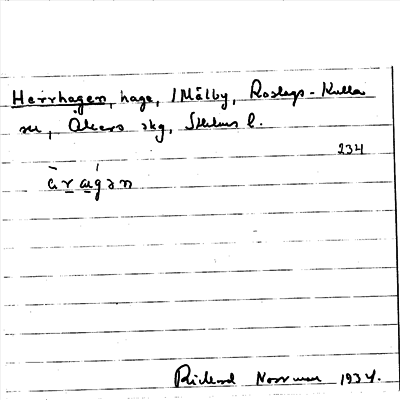 Herrhagen, hage, i Målby, Roslags-Kulla
sn, Åkers skg, Sthlms l.
234
àragən
Rickard Norrman 1934.